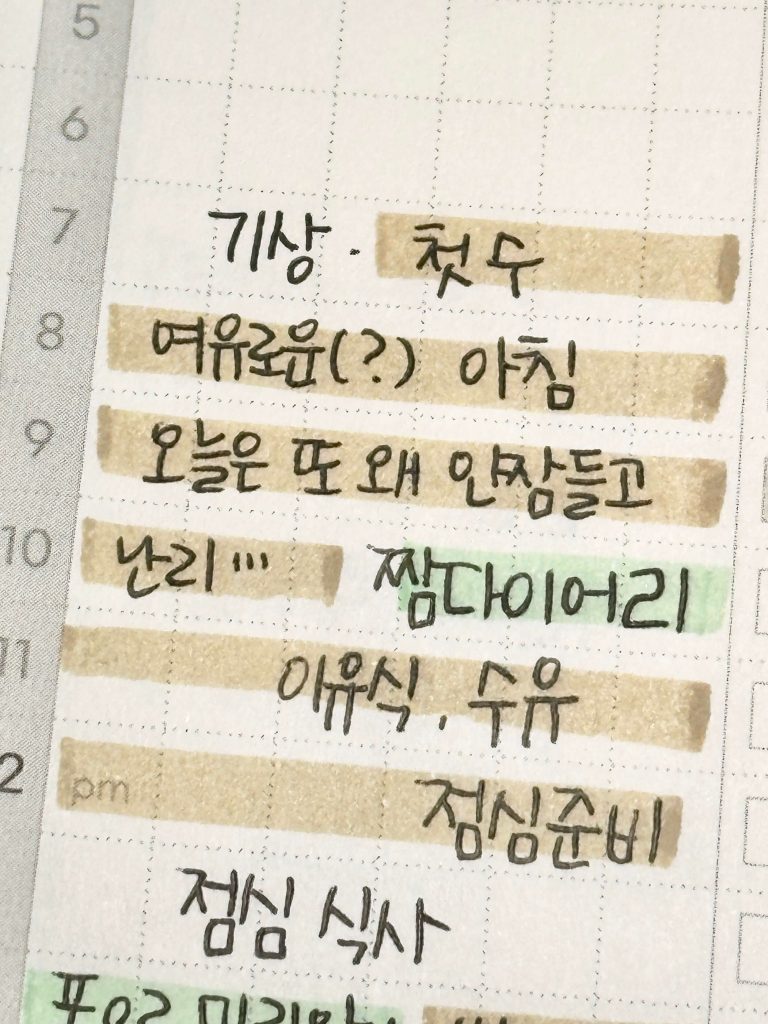 5
6
7 기상 · 첫수
8 여유로운(?) 아침
9 오늘은 또 왜 안잠들고
10 난리··· 짬다이어리
11 이유식, 수유
2 pm 점심준비
점심 식사